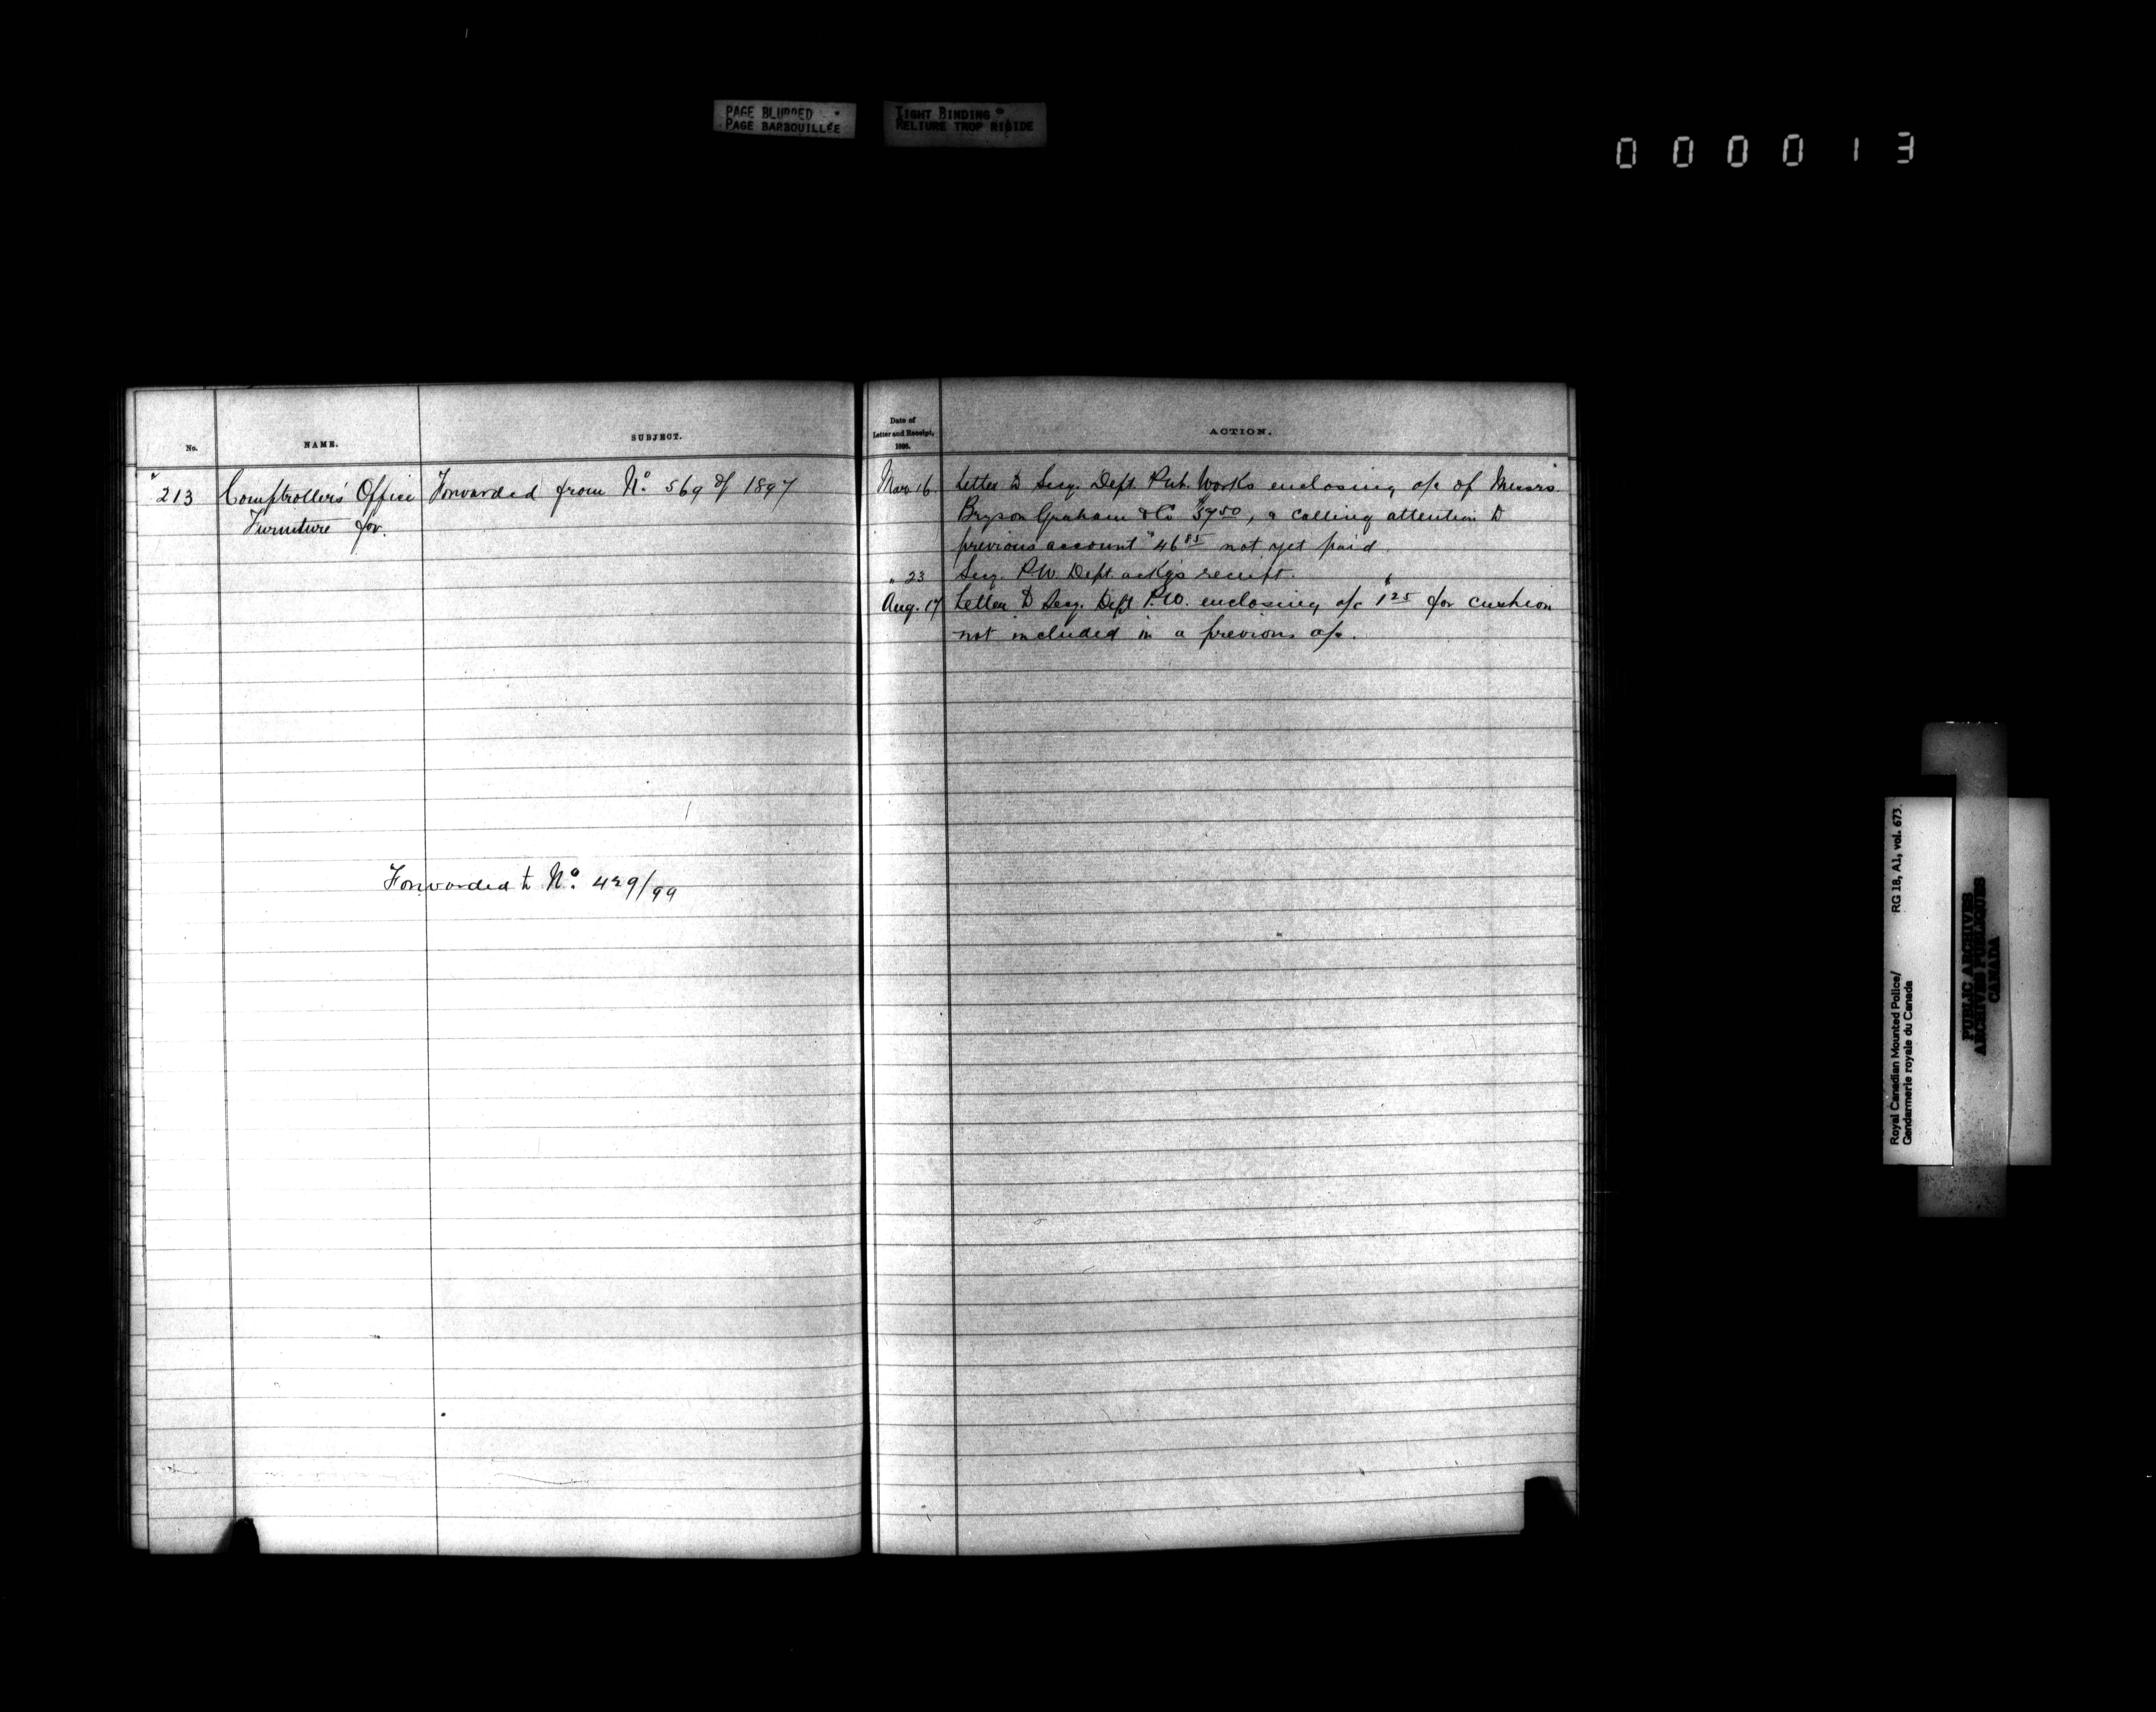 PAGE BLURRED
PAGE BARBOUILLÉE
TIGHT BINDING
RELIURE TROP RIGIDE
000013
No.
NAME.
SUBJECT.
Date of
Letter and Receipt,
1898.
ACTION.
213 Comptroller's Office Forwarded from No. 569 of 1897
Furniture for.
Forwarded to No. 429/99
Mar. 16 Letter to Secy. Dept. Pub. Works enclosing a/c of Messrs
Bryson Graham & Co $3750, & calling attention to
previous account $4685 not yet paid.
" 23 Secy. P.W. Dept. ackgs receipt.
Aug. 17 Letter to Secy. Dept P.W. enclosing a/c $125 for cushion
not included in a previous a/c.
Royal Canadian Mounted Police/ RG 18, A1, vol. 673.
Gendarmerie royale du Canada
PUBLIC ARCHIVES
ARCHIVES PUBLIQUES
CANADA